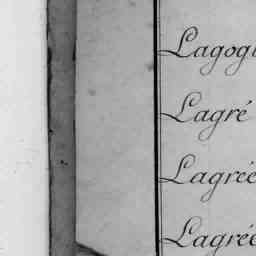 Lagogu
Lagré
Lagrée
Lagrée